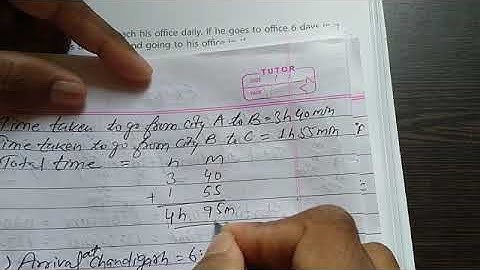 ch his office daily. If he goes to office 6 days in a
nd going to his office in
TUTOR
DATE
PAGE
Time taken to go from city A to B = 3h 40min
Time taken to go from city B to C = 1h 55min
Total time = h M
3 40
+ 1 55
4h 95m
) Arrival at Chandigarh = 6: